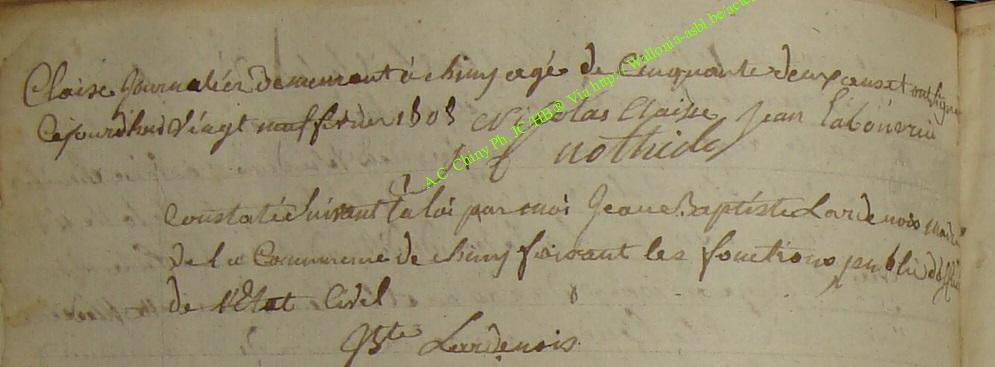 Claise Journalier demeurant à chiny agé de Cinquante deux ans et ont signé
Cejourdhui Vingt neuf fevrier 1808 Nicolas Claisse Jean
nothide
Constaté Suivant la loi par moi Jean Baptiste Lardenois maire
de la Commune de chiny faisant les fonctions public
de l'Etat Civil
Bte Lardenois
A.C. Chiny Ph. JC-HB® Via http://Wallonia-asbl.be/acte